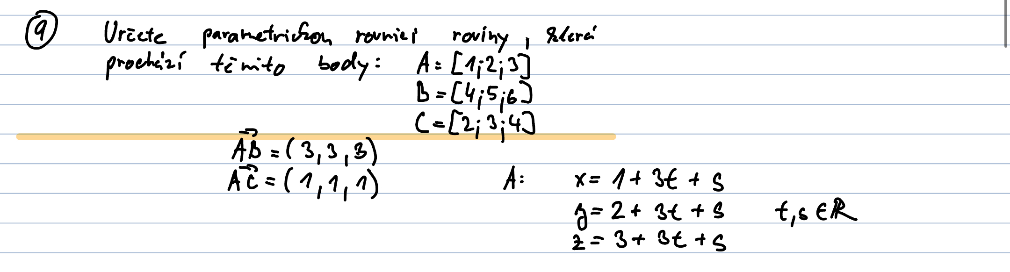 9 Určete parametrickou rovnici roviny, která
prochází těmito body: A = [1;2;3]
B = [4;5;6]
C = [2;3;4]
AB = (3,3,3)
AC = (1,1,1) A: x = 1 + 3t + s
y = 2 + 3t + s t,s ∈ R
z = 3 + 3t + s